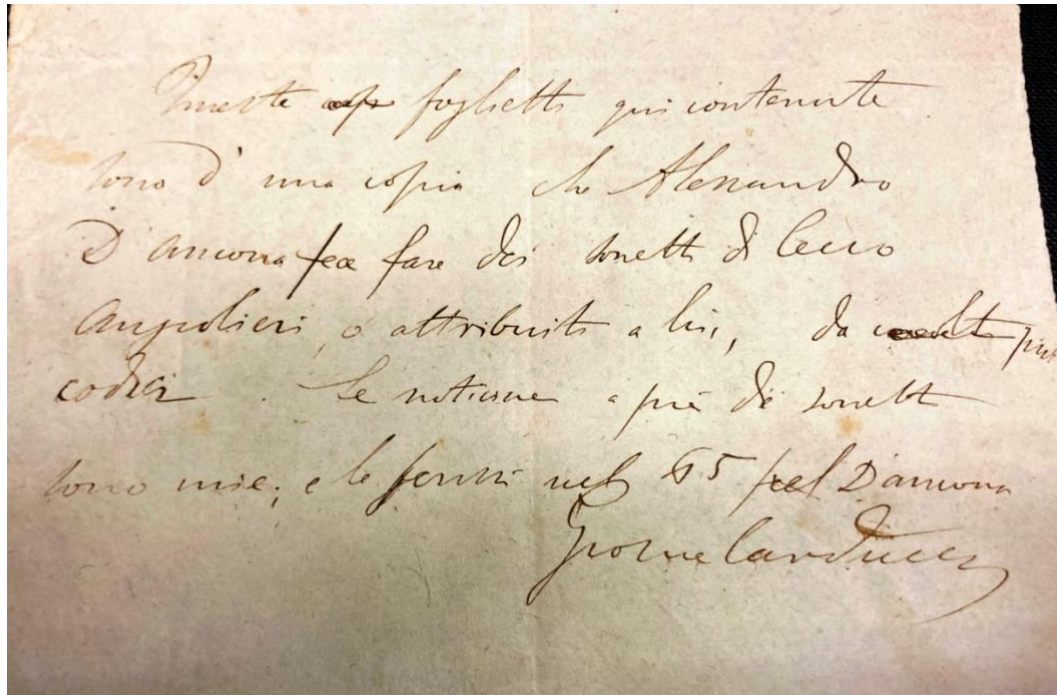 Queste foglietti qui contenute
sono d' una copia che Alessandro
D'Ancona fece fare dei sonetti di Cecco
Angiolieri, o attribuiti a lui, da più
codici. Le noticine a piè dei sonetti
sono mie; e le scrissi nel 65 pel D'Ancona
Giosue Carducci